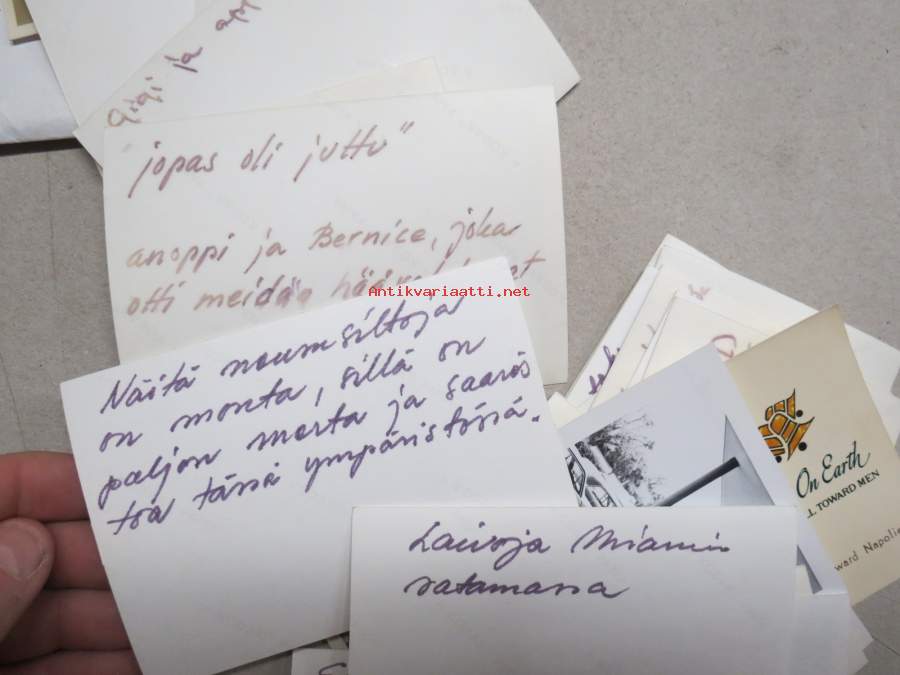 gigi ja
"jopas oli juttu"
anoppi ja Bernice, joka
otti meidän
Antikvariaatti.net
Näitä noumsiltoja
on monta, sillä on
paljon merta ja saaris
toa tässä ympäristössä.
On Earth
LL TOWARD MEN
ward Napolie
Laivoja Miamin
satamassa